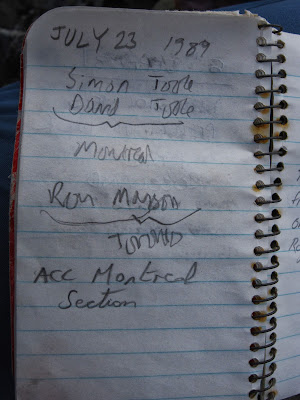 JULY 23 1989
Simon Toole
David Toole
Montreal
Ron Mayson
Toronto
ACC Montreal
Section